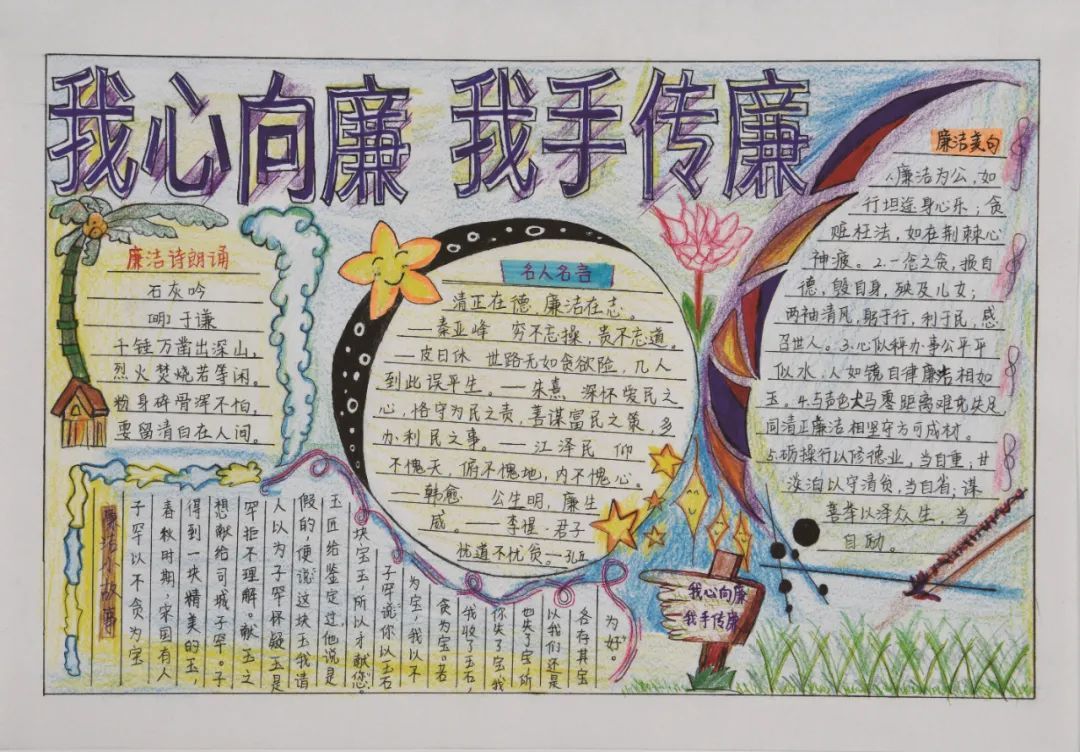 我心向廉 我手传廉
廉洁诗朗诵
石灰吟
明 于谦
千锤万凿出深山,
烈火焚烧若等闲。
粉身碎骨浑不怕,
要留清白在人间。
名人名言
清正在德,廉洁在志。
—秦亚峰 穷不忘操,贵不忘道。
—皮日休 世路无如贪欲险,几人
到此误平生。—朱熹 深怀爱民之
心,恪守为民之责,善谋富民之策,多
办利民之事。—江泽民 仰
不愧天,俯不愧地,内不愧心。
—韩愈 公生明,廉生
威。—李惺·君子
忧道不忧贫—孔丘
廉洁美句
1.廉洁为公,如
行坦途身心乐;贪
赃枉法,如在荆棘心
神疲。2.一念之贪,损自
德,毁自身,殃及儿女;
两袖清风,躬于行,利于民,感
召世人。3.心似秤办事公平平
似水,人如镜自律廉洁相如
玉。4.与声色犬马零距离难免失足
同清正廉洁相坚守方可成材。
5.砺操行以修德业,当自重;甘
淡泊以守清贫,当自省;谋
善举以泽众生,当
自励。
廉洁小故事
子罕以不贪为宝
春秋时期,宋国有人
得到一块精美的玉,
想献给司城子罕。子
罕拒不理解。献玉之
人以为子罕怀疑玉是
假的,便说这块玉我请
玉匠给鉴定过,他说是
块宝玉所以才献您。
子罕说:你以玉石
为宝,我以不
贪为宝。若
我收了玉石,
你失了宝,我
也失了宝所
以我们还是
各存其宝
为好。
我心向廉
我手传廉